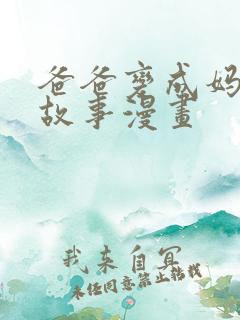 爸爸变成妈
故事漫畫
我来自冥
未经同意禁止转载